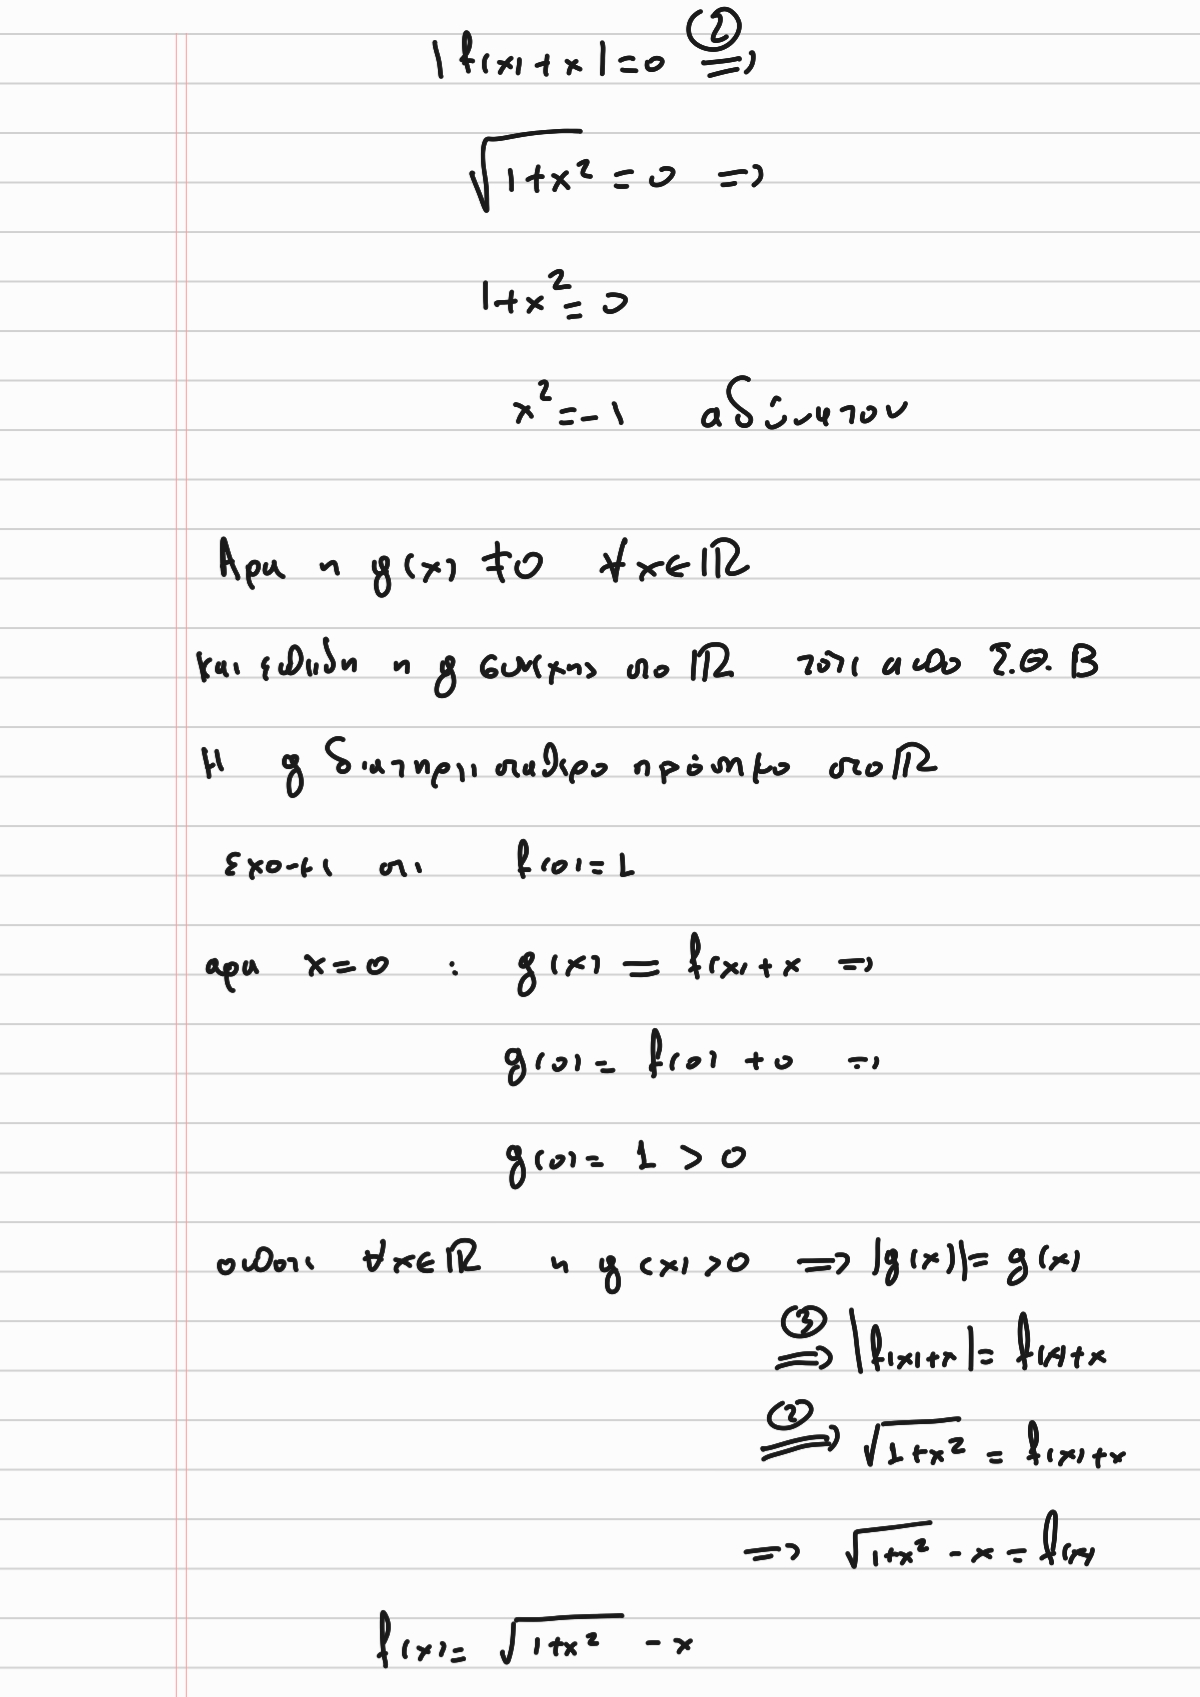 |f(x)+x|=0 ②⟹
√(1+x²) = 0 ⟹
1+x² = 0
x² = -1 αδύνατον
Άρα η g(x) ≠0 ∀x∈ℝ
και επειδή η g συνεχής στο ℝ τότε από Σ.Θ. Β
Η g διατηρεί σταθερο πρόσημο στο ℝ
Εχοντε οτι f(0)=1
αρα x=0 : g(x) = f(x)+x ⟹
g(0) = f(0) +0 ⟹
g(0) = 1 > 0
οποτε ∀x∈ℝ η g(x)>0 ⟹ |g(x)|= g(x)
③⟹ |f(x)+x|= f(x)+x
②⟹ √(1+x²) = f(x)+x
⟹ √(1+x²) - x = f(x)
f(x)= √(1+x²) - x